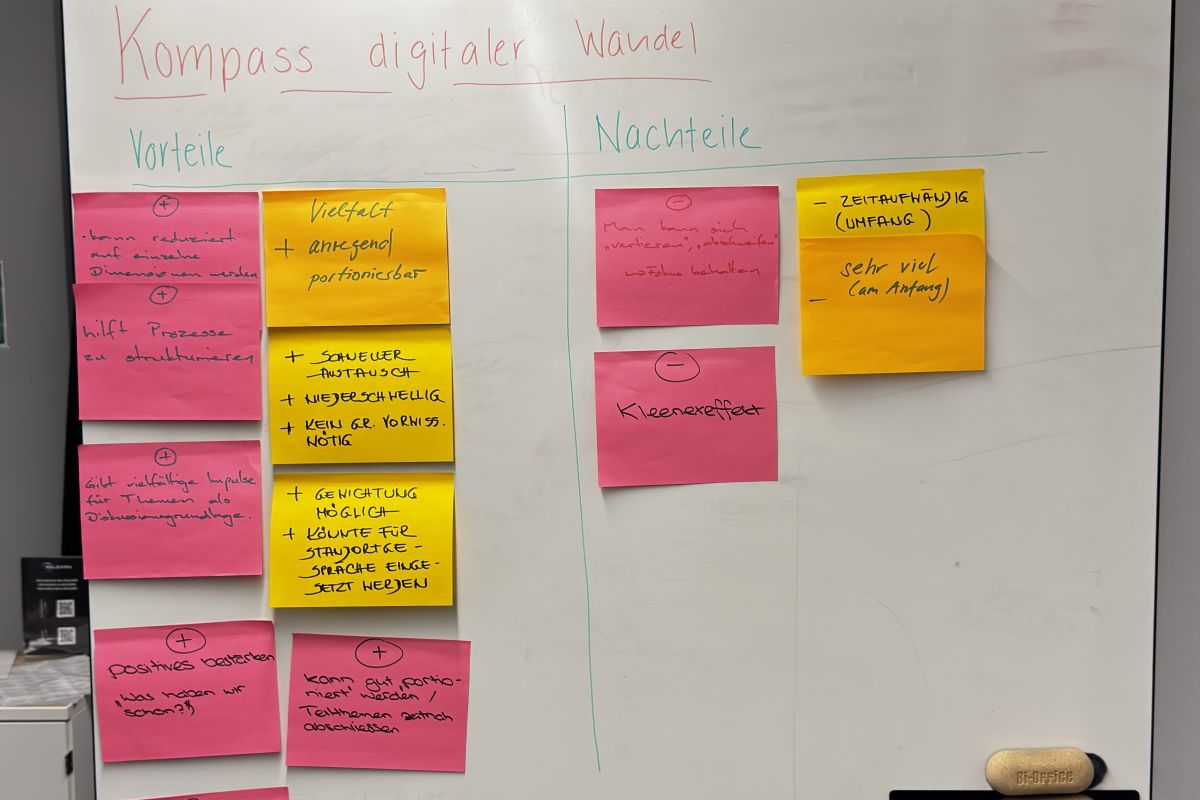 Kompass digitaler Wandel
Vorteile
Nachteile
+
• kann reduziert
auf einzelne
Dimensionen werden
+
hilft Prozesse
zu strukturieren
+
Gibt vielfältige Impulse
für Themen als
Diskussionsgrundlage.
+
positives bestärken
"Was haben wir
schon?")
Vielfalt
+ anregend
portionierbar
+ SCHNELLER
AUSTAUSCH
+ NIEDERSCHWELLIG
+ KEIN GR. VORWISS.
NÖTIG
+ GEWICHTUNG
MÖGLICH
+ KÖNNTE FÜR
STANDORTGE-
SPRÄCHE EINGE-
SETZT WERDEN
+
kann gut "portio-
niert" werden /
Teilthemen zeitnah
abschliessen
-
Man kann sich
"verlieren", "abschweifen"
→ Fokus behalten
-
Kleenexeffekt
- ZEITAUFWÄNDIG
(UMFANG)
sehr viel
- (am Anfang)
Bi-Office